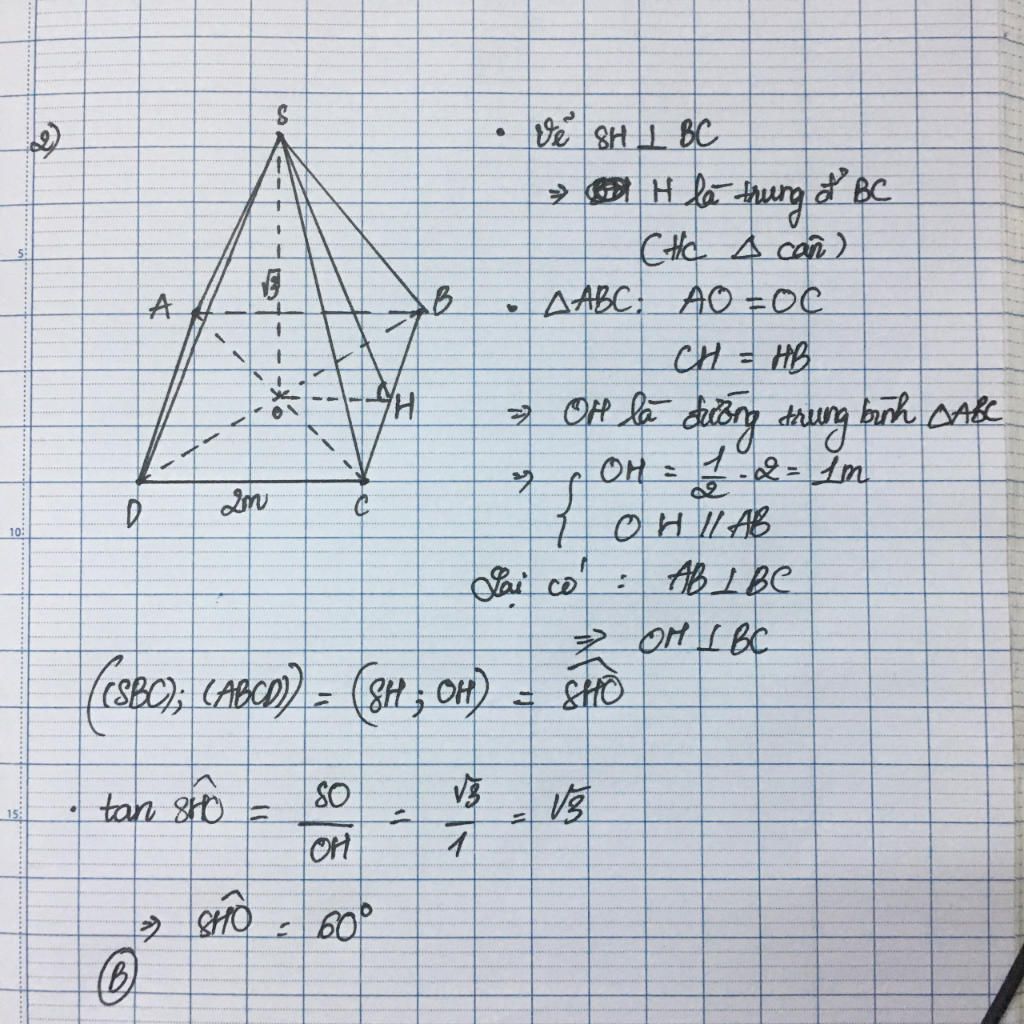 2)
S
A
B
√3
O
H
D
2m
C
• Vẽ SH ⊥ BC
⇒ H là trung đ' BC
(t/c Δ cân)
• ΔABC: AO = OC
CH = HB
⇒ OH là đường trung bình ΔABC
⇒ { OH = 1/2 . 2 = 1m
OH // AB
Lại có : AB ⊥ BC
⇒ OH ⊥ BC
((SBC); (ABCD)) = (SH ; OH) = \widehat{SHO}
• tan \widehat{SHO} = SO/OH = √3/1 = √3
⇒ \widehat{SHO} = 60°
Ⓑ
5
10
15